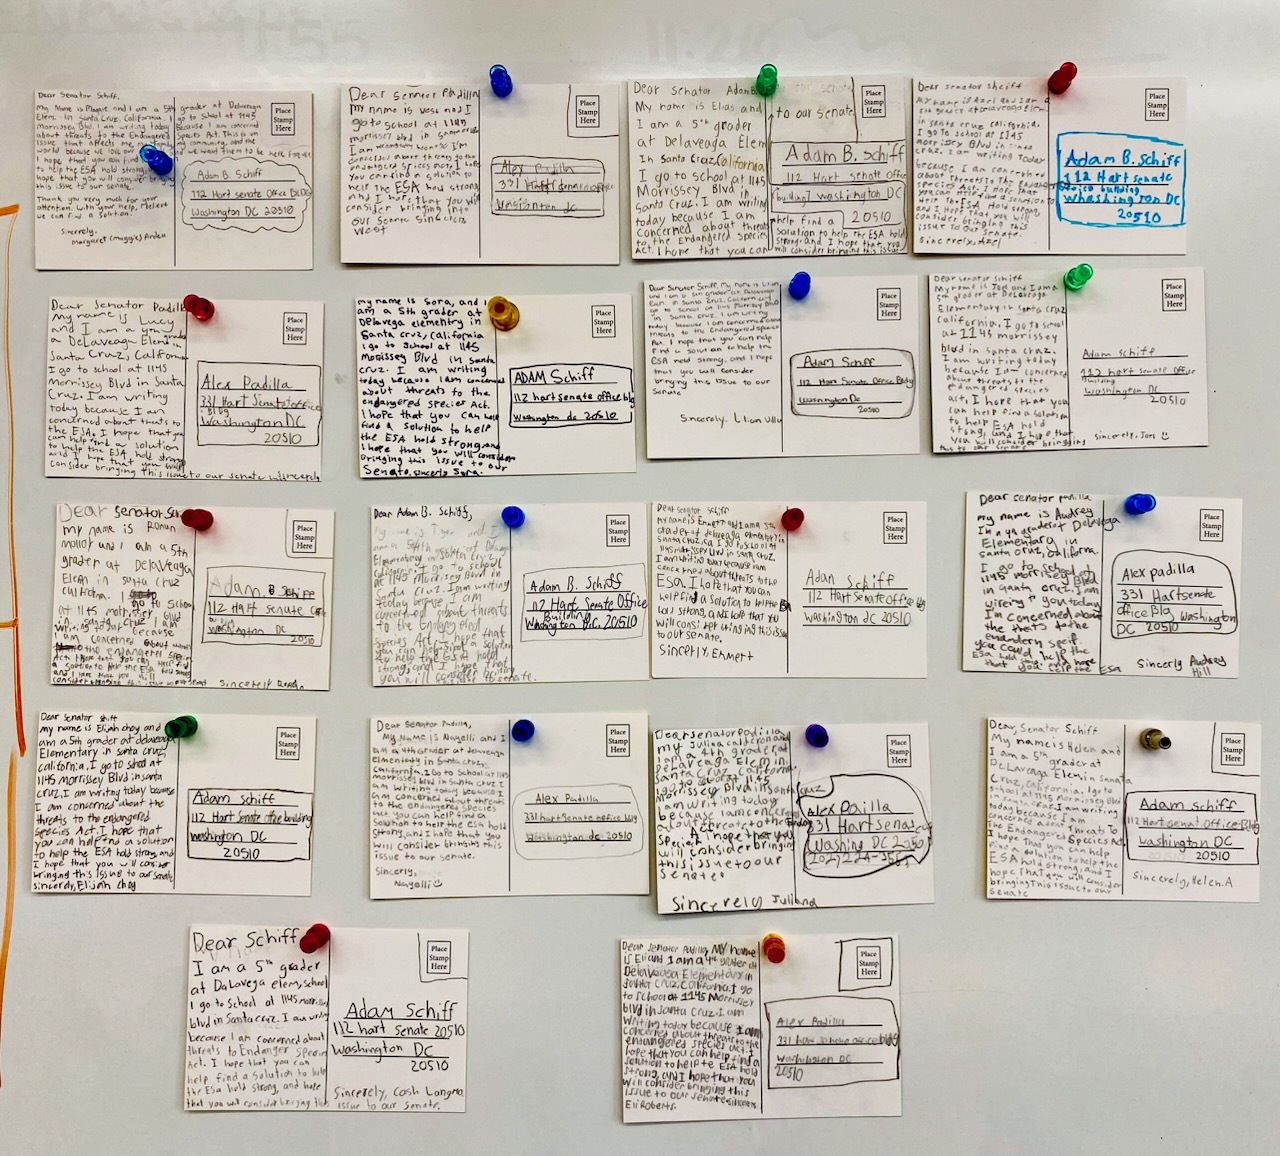 Dear Senator Schiff,
My Name is Maggie and I am a 5th grader at DeLaveaga
Elem. in Santa Cruz, California. I go to school at 1145
Morrissey Blvd. I am writing today because I am concerned
about threats to the Endangered Species Act. This is an
issue that affects me, my community, and the
world because we love our and we want them to be here forever.
I hope that you can find
to help the ESA hold strong
hope that you will consider bringing
this issue to our senate.
Thank you very much for your
attention. With your help, I believe
we can find a solution.
Sincerely,
Margaret (Maggie)
Place
Stamp
Here
Adam B. Schiff
112 Hart Senate Office BLDG
Washington DC 20510
Dear Senator Padilla
My name is West and I
go to school at 1145
morrissey blvd in
I am
concerned about threats to the
I hope
you can find a solution to
help the ESA hold strong
and I hope that you will
consider bringing into
our Senate Sincerely
West
Place
Stamp
Here
Alex Padilla
331
dc
Dear Senator Adam B
My name is Elias and
I am a 5th grader
at DeLaveaga Elem
In Santa Cruz California
I go to school at 1145
Morrissey Blvd in
Santa Cruz. I am writing
today because I am
concerned about threats
to the Endangered Species
Act. I hope that you can
to our Senate
Place
Stamp
Here
Adam B. Schiff
112 Hart Senate office
building washington DC
20510
help find a
Solution to help the ESA hold
strong and I hope that you
will consider bringing this issue
Dear Senator Shciff
in santa cruz california.
I go to School at 1145
Morrissey Blvd in Santa
cruz. I am writing Today
because I am concerned
about threats to The
Species Act. I Hope that
you can Help Find a Solution to
Help The ESA Hold strong
and I Hope that You will
consider bringing this
issue To our Senate.
Sincerely, Azel
Place
Stamp
Here
Adam B. Schiff
112 Hart Senate
building
Whashington DC
20510
Dear Senator Padilla
My name is Lucy
and I am a 4th grade
a DeLaveaga Elem in
Santa Cruz, California
I go to school at 1145
Morrissey Blvd in Santa
Cruz. I am writing
today because I am
concerned about thrats to
the ESA. I hope that you
can help find a solution
to help the ESA hold strong
and I hope that you will
consider bringing this issue to our senate sincerely
Place
Stamp
Here
Alex Padilla
331 Hart Senat office
Bldg
Washington DC
20510
my name is Sora, and I
am a 5th grader at
DeLavega elementry in
Santa cruz, california
I go to school at 1145
Morissey Blvd in Santa
cruz. I am writing
today because I am concerned
about threats to the
endangered species Act.
I hope that you can help
find a solution to help
the ESA hold strong, and
I hope that you will consider
bringing this issue to our
Senate, sincerly Sora.
Place
Stamp
Here
ADAM Schiff
112 hart senate office bldg
Washington, dc 20510
Dear Senator Schiff, My name is Lilian
and I am a 5th grader at DeLaveaga
Elem in Santa Cruz, California I
go to school at 1145 Morrissey Blvd
in Santa Cruz, I am writing
today because I am concerned about
threats to the Endangered species
Act. I hope that you can help
find a solution to help the
ESA hold strong, and I hope
that you will consider
bringing this issue to our
Senate
Sincerely, Lilian
Place
Stamp
Here
Adam Schiff
112 Hart Senate Office Bldg
Washington Dc
20510
Dear senator Schiff
My name is Joel and I am a
5th grader at DeLaveaga
Elementary in santa cruz
California, I go to school
at 1145 morrissey
blvd in santa cruz.
I am writing today
because I am concerned
about threats to the
endangered species
act, I hope that you
can help find a solution
to help ESA hold
strong, and I hope that
you will consider bringing
this to our Senate
Sincerely, Joel
Place
Stamp
Here
Adam Schiff
112 hart Senate Office
Building
Washington DC
20510
Dear Senator
my name is Ronun
and I am a 5th
grader at DeLaveaga
Elem in santa cruz
I go to school
at 1145
because
I am concerned about threats
to the endangered species
Act I hope that you can help find
a solution to
and I hope that you will
consider bringing this issue to our senat
Sincerely Ronan
Place
Stamp
Here
Adam. B. Schiff
112 Hart Senate
Bldg
Washington DC
20510
Dear Adam B. Schiff,
my name is and I
grader at
Elementary in Santa Cruz
California. I go to school
at 1145 Morrissey Blvd in
Santa Cruz. I am writing
today because I am
concerned about threats
to the Endangered
Species Act. I hope that
you can help find a solution
to help the ESA hold
strong, and I hope that
you will consider bringing
to senate.
Place
Stamp
Here
Adam B. Schiff
112 Hart Senate Office
Building
Washington D.C. 20510
Dear Senator Schiff
my name is Emmert and I am a 5th
grader at delaveaga elementary in
Santa cruz, ca. I go to school at
1145 morrissey blvd in santa cruz.
I am writing today because I am
concerned about threats to the
ESA. I hope that you can
help find a solution to help the ESA
hold strong, and I hope that you
will consider bringing this issue
to our senate.
Sincerly, Emmert
Place
Stamp
Here
Adan Schiff
112 Hart Senate Office bldg
Washington dc 20510
Dear senator padilla
my name is Audrey
Im a 4th grader at Delavega
Elementary in
santa cruz, california.
I go to school at
1145 morrissey Blvd
in Santa cruz. I am
wireing you today
I'm concerned about
the thrats to the
you could help the
ESA hold strong
that you help the ESA
Sincerly Audrey
Hill
Place
Stamp
Here
Alex padilla
331 Hartsenate
office Blg Washington
DC 20510
Dear senator shiff
my name is Elijah choy and
am a 5th grader at delaveaga
Elementary in santa cruz
california, I go to school at
1145 Morrissey Blvd in santa
cruz, I am writing today because
I am concerned about the
threats to the endangered
species Act. I hope that
you can help find a solution
to help the ESA hold strong, and
I hope that you will consider
bringing this issue to our senate
sincerely, Elijah choy
Place
Stamp
Here
Adam schiff
112 Hart Senate office building
washington DC
20510
Dear Senator Padilla,
My Name is Nayelli and I
am a 4th grader at delaveaga
Elementary in Santa cruz
California, I Go to School at 1145
morrissey blvd in Santa cruz. I
am writing today because I
am concerned about threats
to the endangered species
act. you can help find a
solution to help the ESA hold
strong, and I hope that you
will consider bringing this
issue to our senate.
Sincerly,
Nayelli
Place
Stamp
Here
Alex Padilla
331 hart senate office bldg
Washington dc 20510
Dear senator Padilla
my Juliana calderon and
I am a 4th grader at
DeLaveaga Elem in
Santa Cruz California
I go to school at 1145
Morrissey Blvd in Santa cruz
I am writing today
because I am concerned
about threats to the
Species A I hope that you
will consider bringing
this issue to our
senate.
Sincerely Juliana
Place
Stamp
Here
Alex Pailla
331 Hart senas
Washing DC 2050
Dear, Senator Schiff
My name is Helen and
I am a 5th grader at
DeLaveaga Elem in Santa
Cruz, California, I go to
school at 1145 Morrissey Blvd
in Santa Cruz. I am writing
today because I am
concerned about Threats To
The Endangered Species Act.
I hope that you can help
find a solution to help the
ESA hold strong, and I
hope that you will consider
bringing This issue to our
senate
Sincerely, Helen. A
Place
Stamp
Here
Adam schiff
112 Hart senat Office Bldg
washington DC
20510
Dear Schiff
I am a 5th grader
at DaLavega elem, school
I go to School at 1145 morrissey
blvd in Santa cruz. I am writing
because I am concerned about
threats to Endanger Species
Act. I hope that you can
help find a solution to help
the ESA hold strong, and hope
that you will consider bringing this issue to our Senate.
Place
Stamp
Here
Adam Schiff
112 hart Senate 20510
Washington DC
20510
Sincerely, Cash
Dear Senator Padilla, My name
is Eli and I am a 4th grader at
DeLaVeaga Elementary in
Santa Cruz, California, I go
to school at 1145 Morrissey
blvd in Santa Cruz. I am
writing today because I am
concerned about threats to the
endangered species act. I
hope that you can help find a
solution to help te ESA hold
strong, and I hope that you
will consider bringing this
issue to our senate sincerely
Eli Roberts.
Place
Stamp
Here
Alex Padilla
331 hart senate office bldg
Washington DC
20510